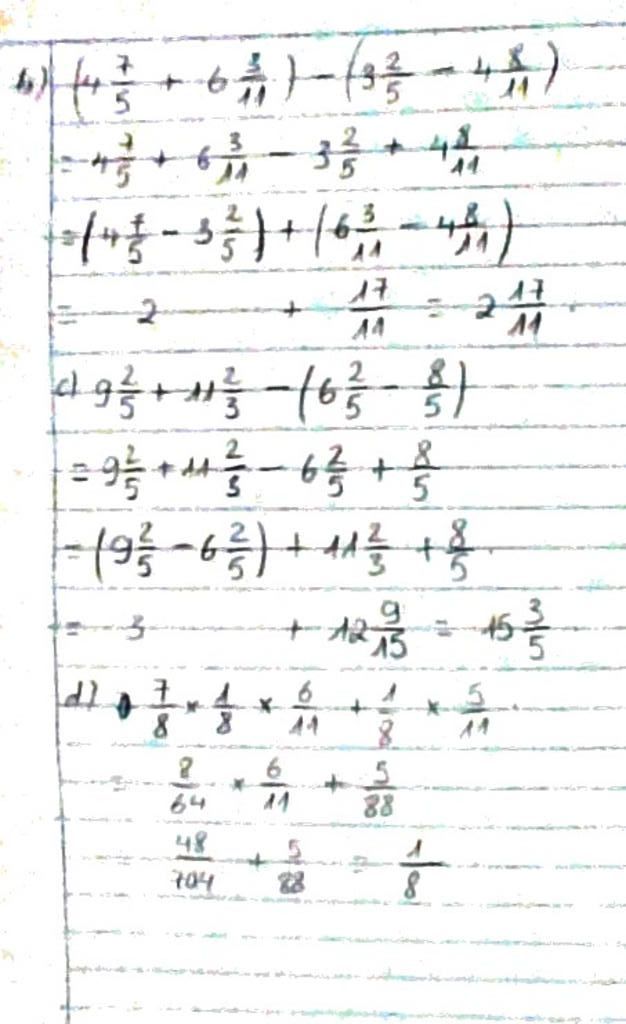 b) (4 7/5 + 6 3/11) - (3 2/5 - 4 8/11)
= 4 7/5 + 6 3/11 - 3 2/5 + 4 8/11
= (4 7/5 - 3 2/5) + (6 3/11 - 4 8/11)
= 2 + 17/11 = 2 17/11.
c) 9 2/5 + 11 2/3 - (6 2/5 - 8/5)
= 9 2/5 + 11 2/3 - 6 2/5 + 8/5
= (9 2/5 - 6 2/5) + 11 2/3 + 8/5.
= 3 + 12 9/15 = 15 3/5
d) 7/8 × 1/8 × 6/11 + 1/8 × 5/11.
= 8/64 × 6/11 + 5/88
= 48/704 + 5/88 = 1/8